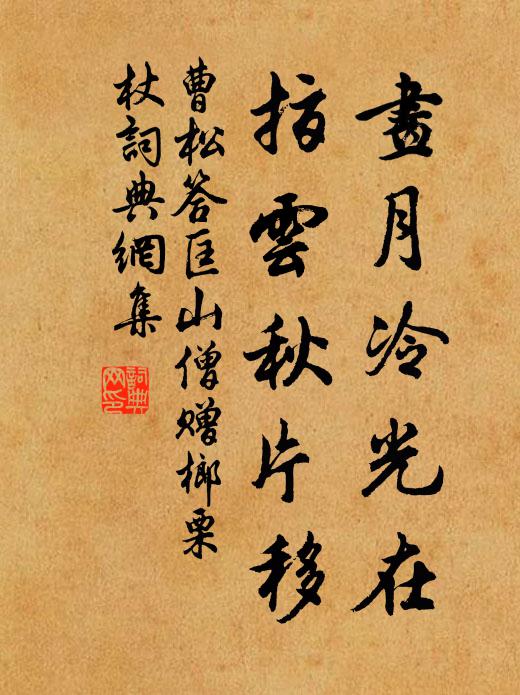 畫月冷光在
指雲秋片移
曹松答匡山僧贈榔栗
杖詞典網集
詞典
网印